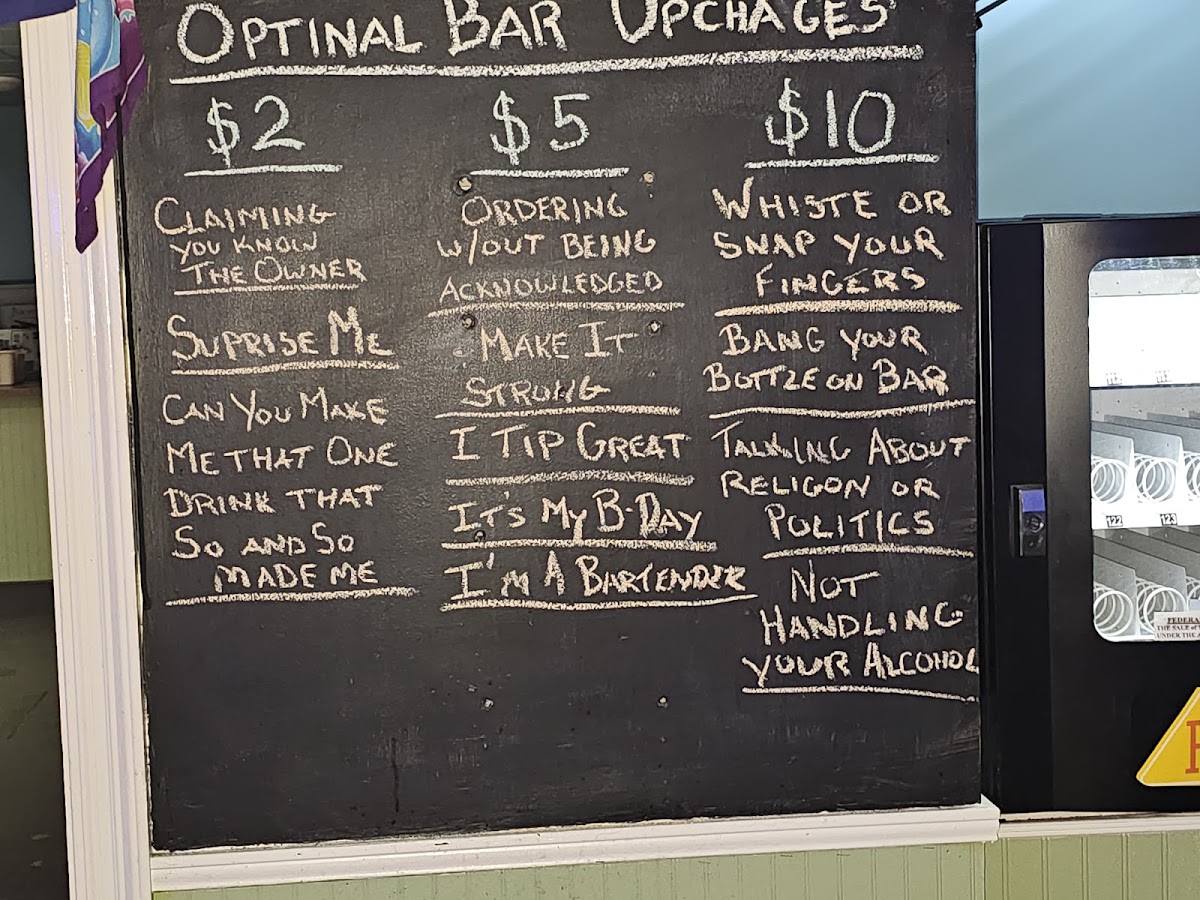 OPTINAL BAR UPCHAGES
$2
CLAIMING
YOU KNOW
THE OWNER
SUPRISE ME
CAN YOU MAKE
ME THAT ONE
DRINK THAT
SO AND SO
MADE ME
$5
ORDERING
W/OUT BEING
ACKNOWLEDGED
MAKE IT
STRONG
I TIP GREAT
IT'S MY B-DAY
I'M A BARTENDER
$10
WHISTE OR
SNAP YOUR
FINGERS
BANG YOUR
BOTTLE ON BAR
TALKING ABOUT
RELIGON OR
POLITICS
NOT
HANDLING
YOUR ALCOHOL
122
123
THE SALE of
UNDER THE